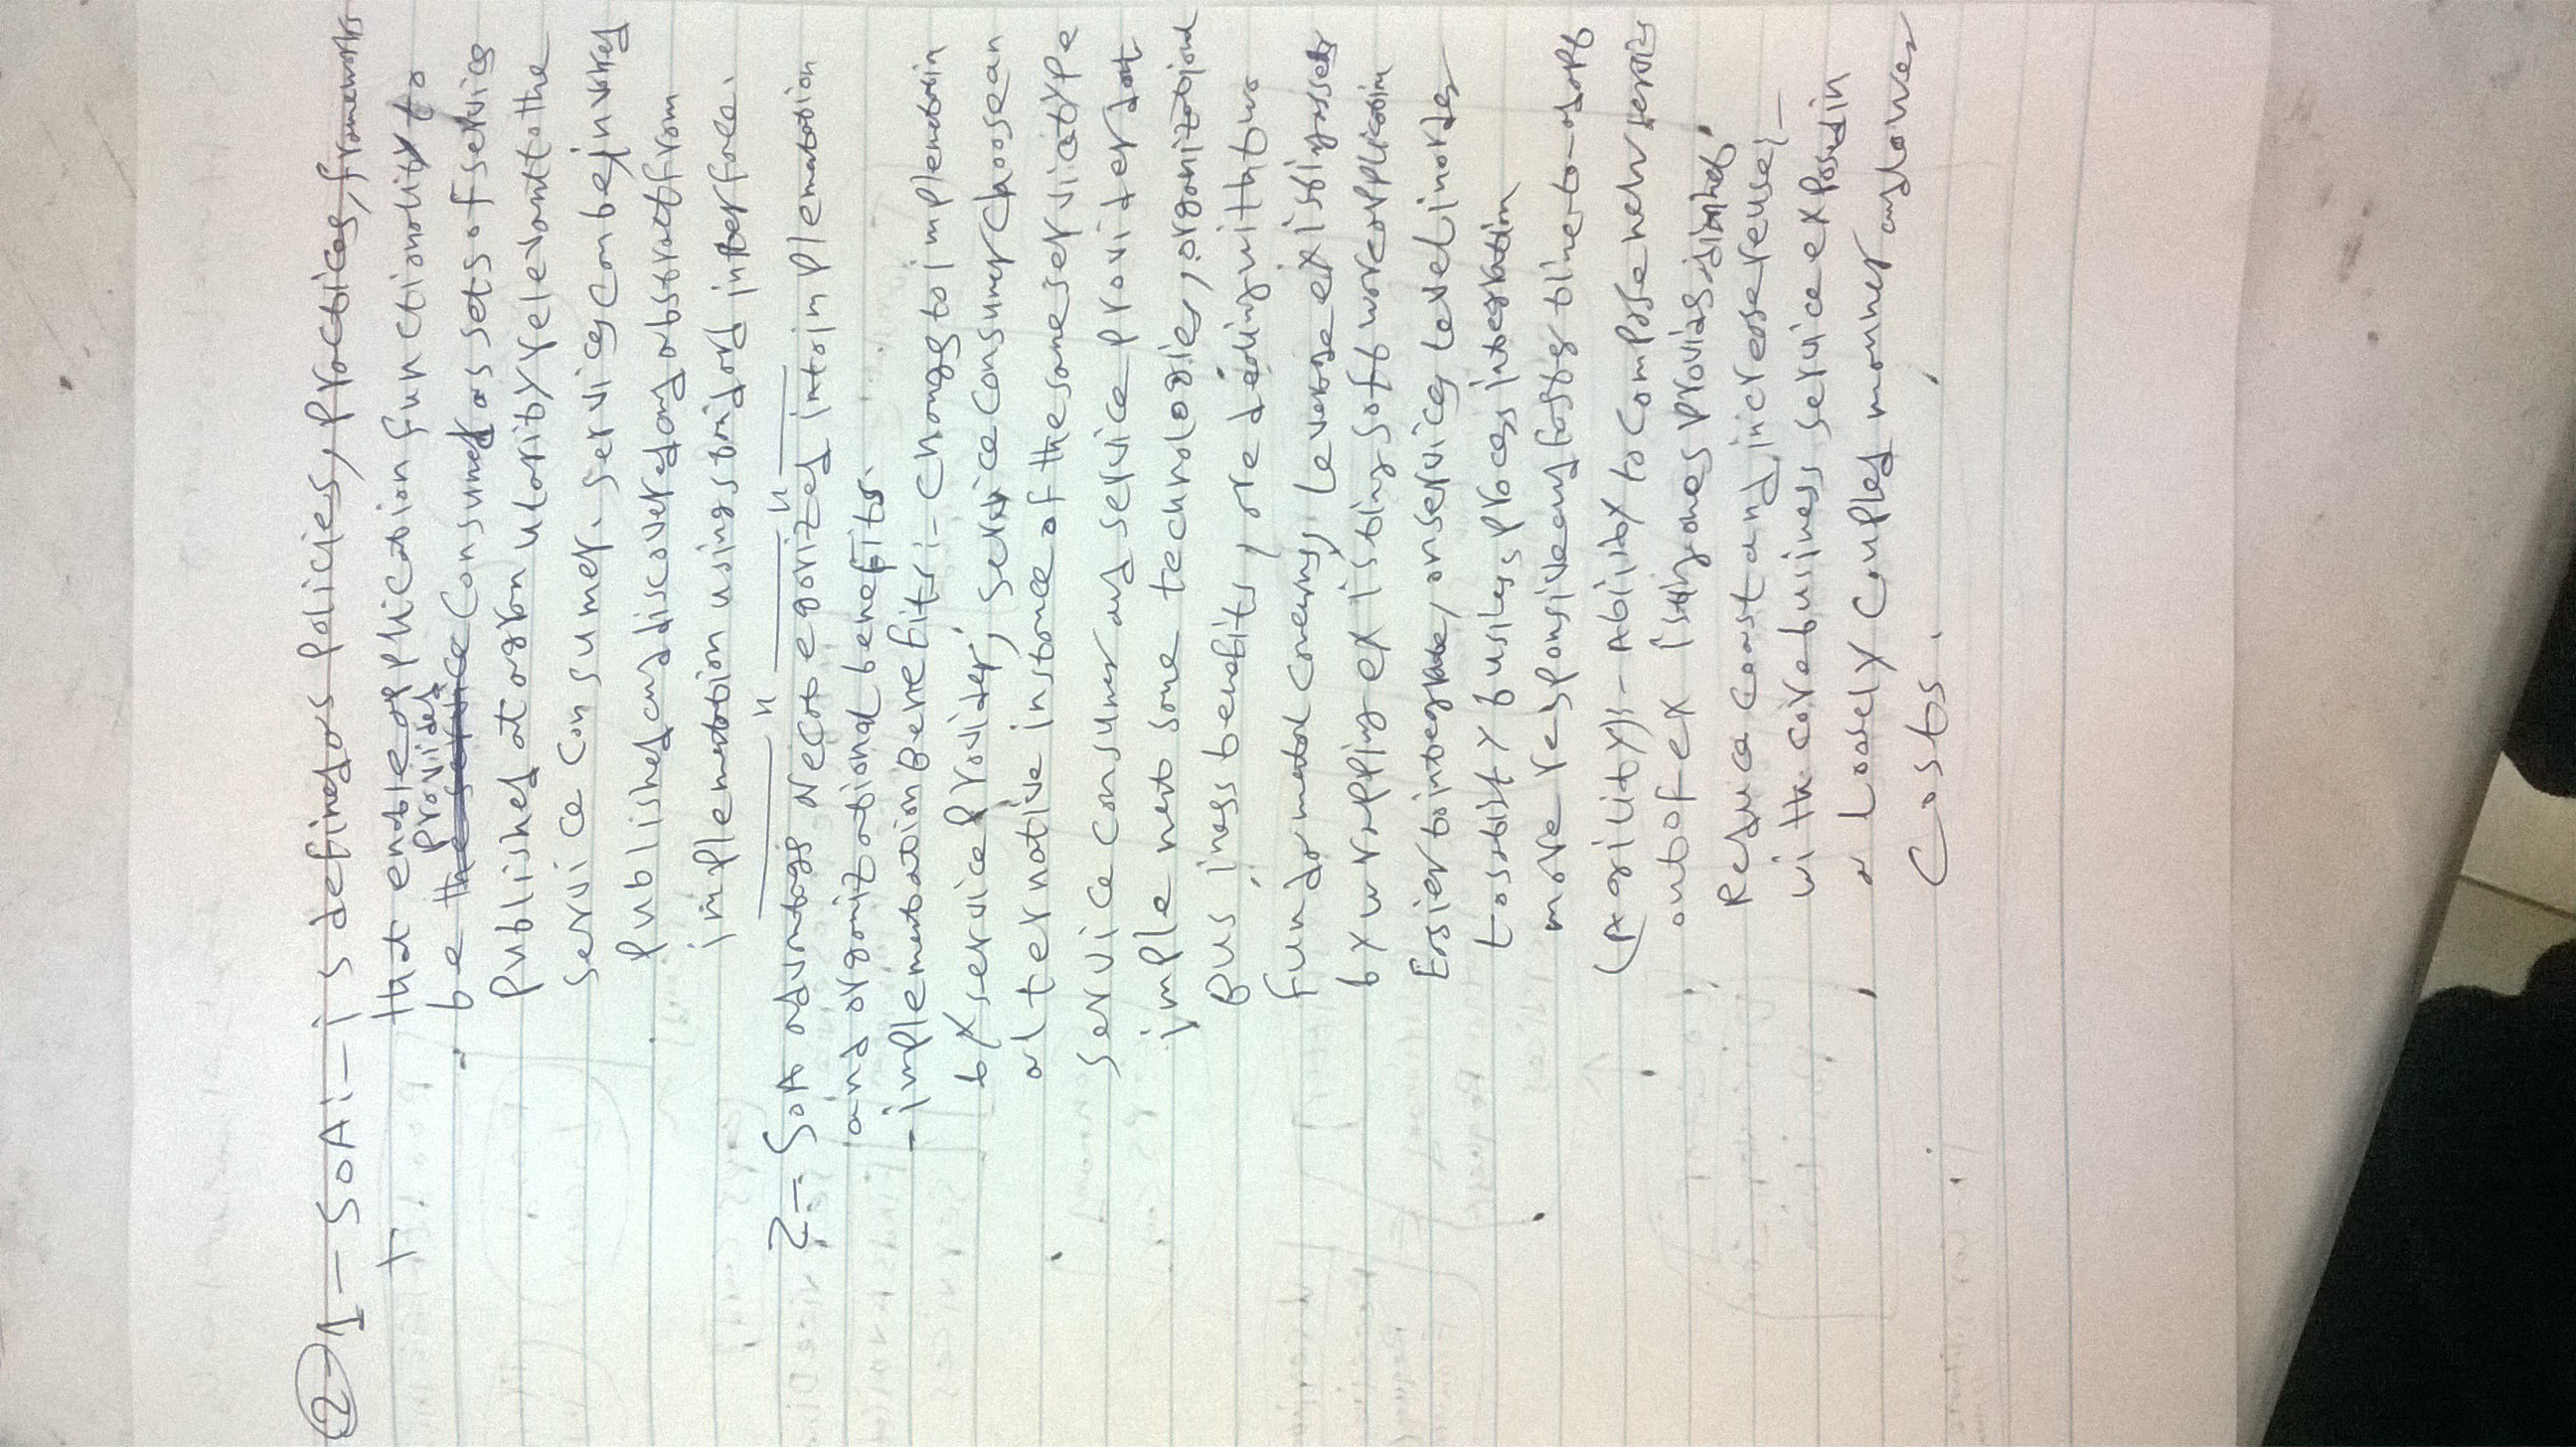 ② 1 - SOA:- is defined as Policies, Practices, frameworks
+ that enable application functionality to
Provided
be the service Consumed as sets of service
Published at a granularity relevant to the
service consumer. services can be invoked
Published and discovered and abstract from
implementation using standard interface.
2- SOA advantages are categorized into implementation
and organizational benefits.
- implementation Benefits:- change to implementation
by service Provider, service consumer choose an
alternative instance of the same service type
service consumer and service provider don't
implement same technologies, organizational
Business benefits, are dealing with two
fundamental concerns, leverage existing assets
by wrapping existing software application
Easier to integrate, on services level in order
to satisfy business process integration
more responsive and faster time-to-
(Agility):- Ability to compose new services
out of existing ones provides
Reduce coast and increase reuse:-
with core business service exposed in
a loosely coupled manner and lower
costs.